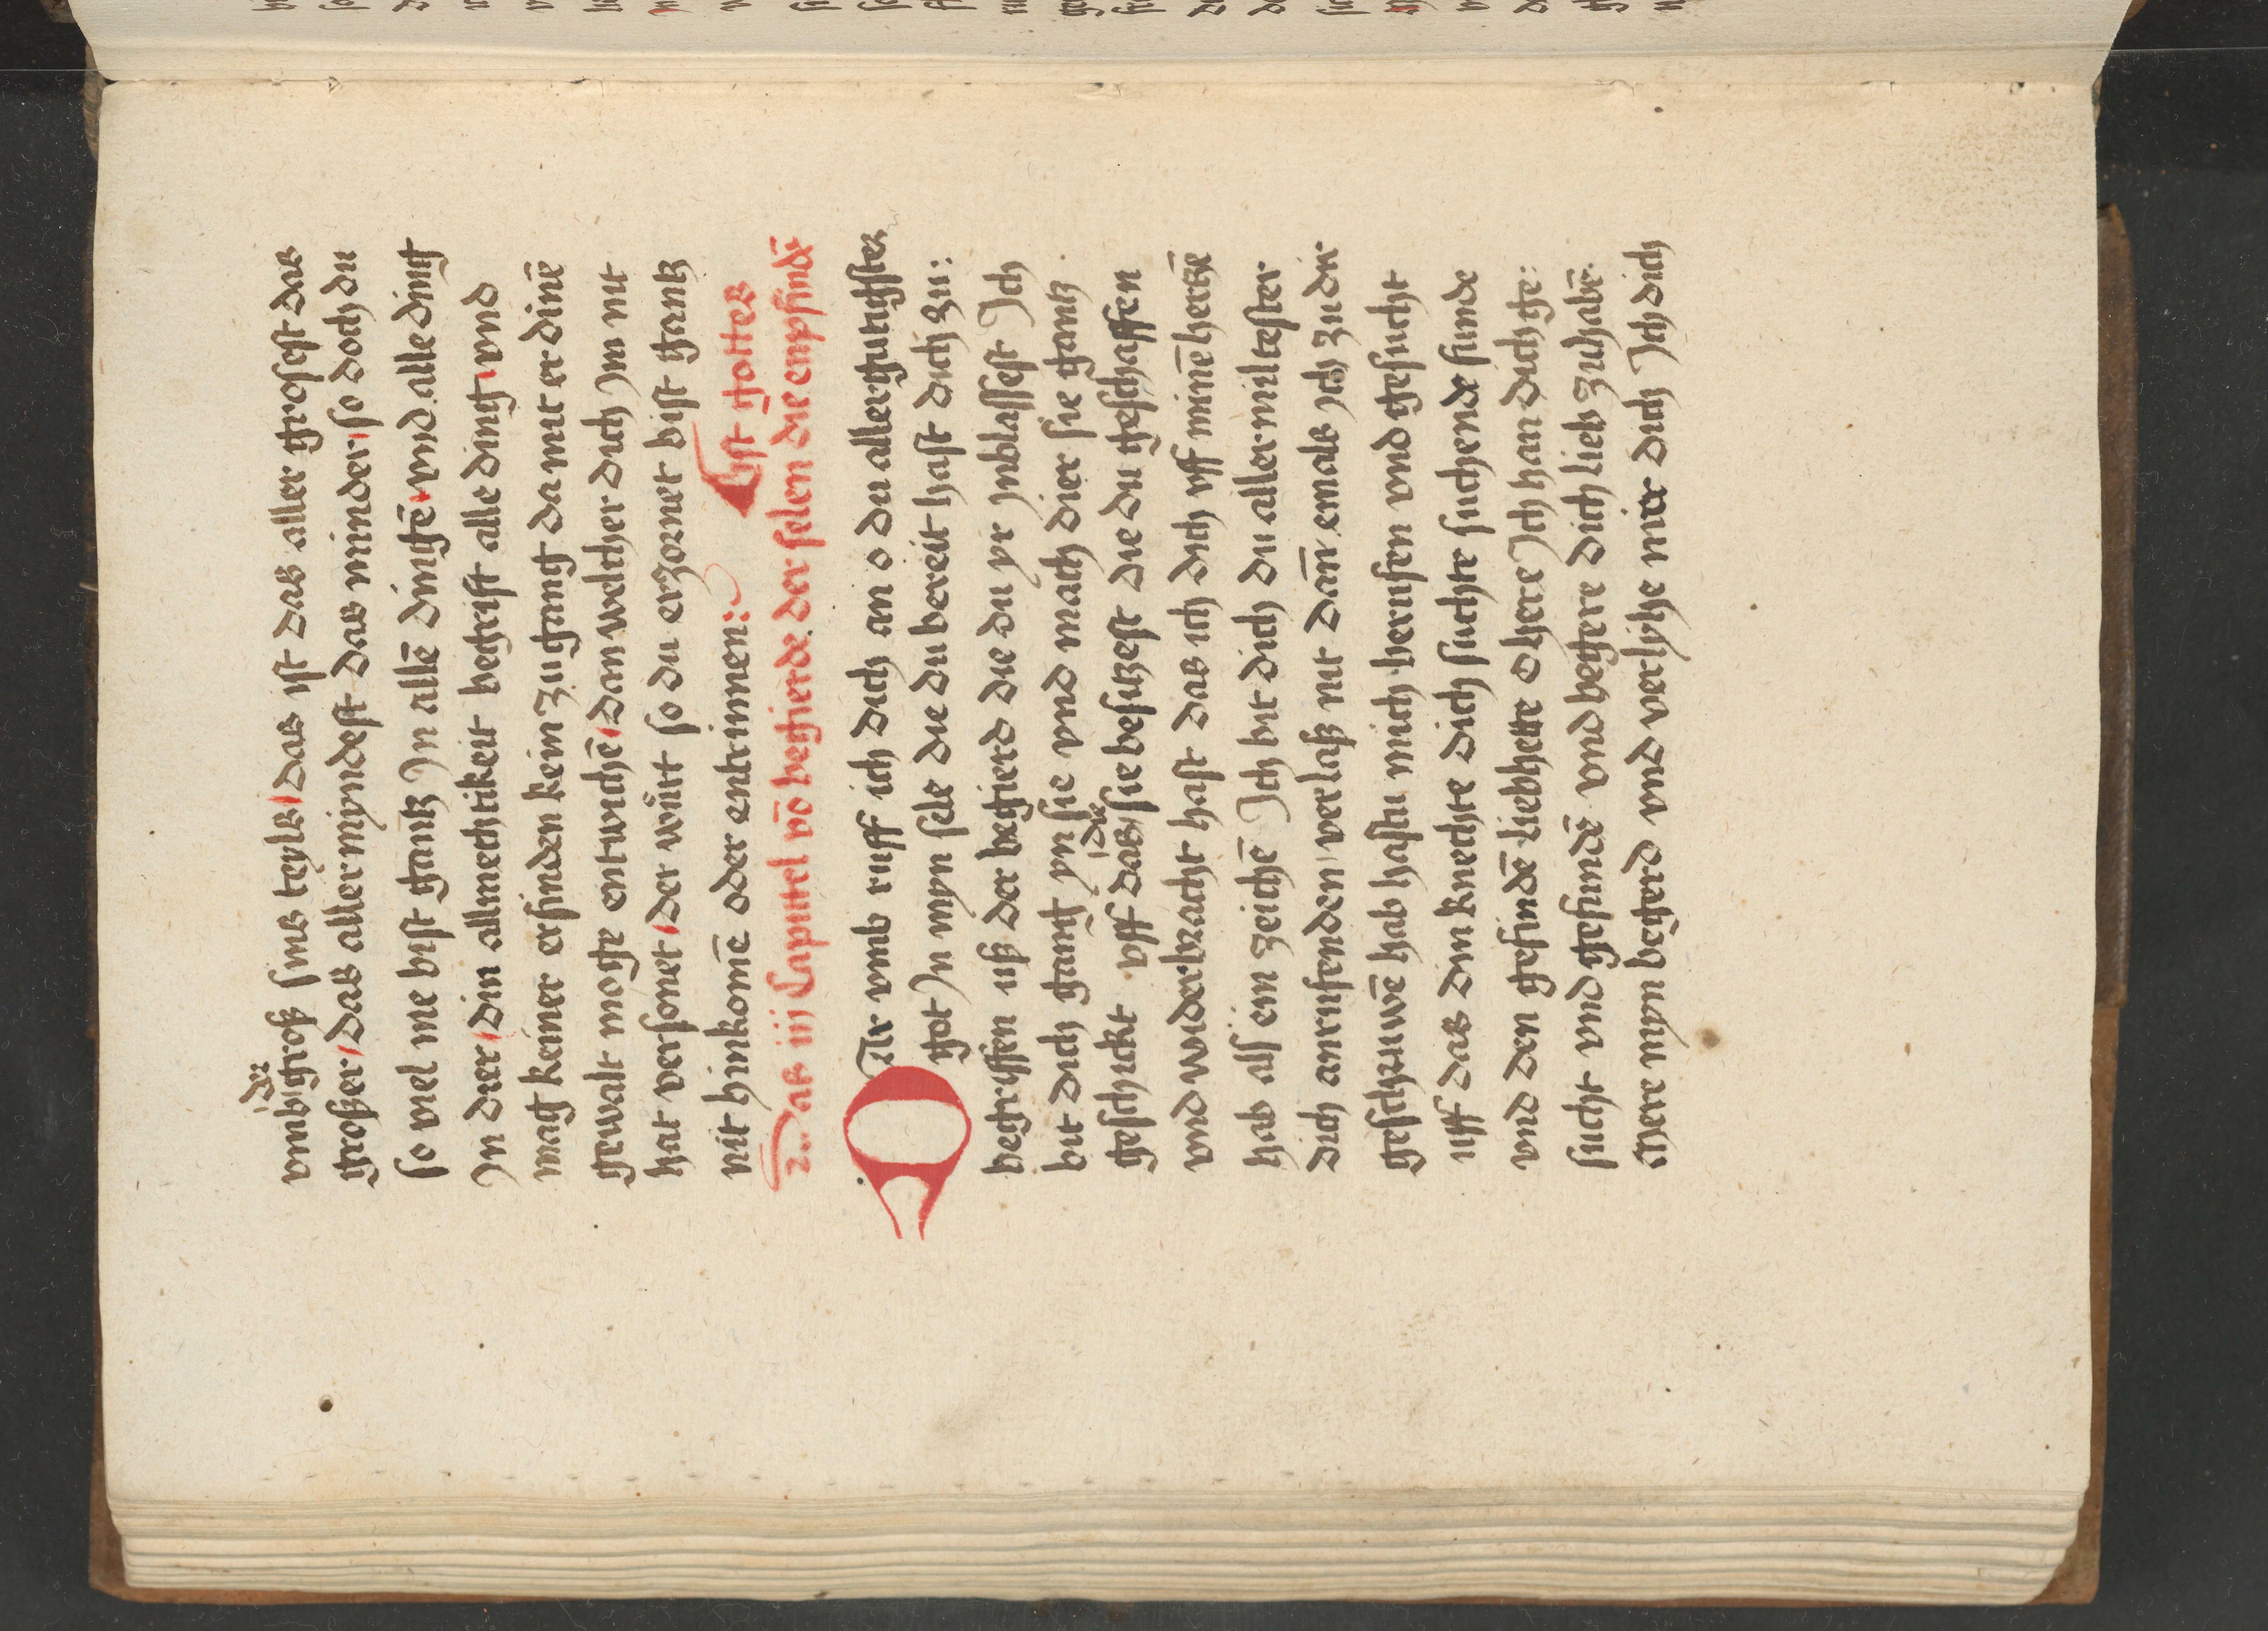 der
vmb groß sins teyls das ist das aller grosest das
großer das aller myndest das minder so doch du
so viel me bist gantz Jn allē dingē vnd alle ding
Jn dier din allmechtikeit begrift alle ding vnd
mag keiner erfinden kein zugang da mit er dinē
gewalt moge entwichē dan welcher dich Jm nit
hat versonet der wůrt so du erzornet bist gantz
nit hinkomē oder entrinnen: lust gottes
Das iij Capittel vō begierde der selen die enpfindē
DAr vmb ruff ich dich an o du allergutigster
got Jn myn sele die du bereit hast dich zu:
begriffen uß der begierd die du yr Jnblassest Jch
bit dich gang yn sie vnd mach dier sie gantz
die
geschickt vff das sie besitzest die du geschaffen
vnd widerbracht hast das ich dich vff minē hertzē
hab als ein zeichē Jch bit dich du aller miltester
dich anrufenden verlaß nit dan̄ emals ich zu dir
geschruwē hab hastu mich berufen vnd gesucht
uff das din knechte dich suchte suchende funde
vnd den gefindē liebhette o here Jch han dich ge:
sucht vnd gefundē vnd begere dich lieb zuhabē
Mere myn begerd vnd verlyhe mir dich Jch dich